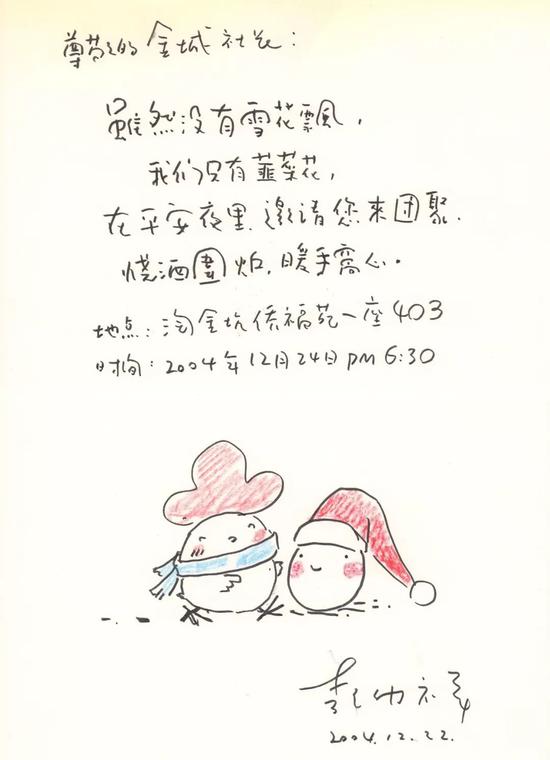 尊敬的金城社长：
虽然没有雪花飄，
我们只有韮菜花，
在平安夜里邀请您來团聚.
烧酒圍炉，暖手窩心。
地点：淘金坑侨福苑一座403
时间：2004年12月24日pm 6:30
2004.12.22.